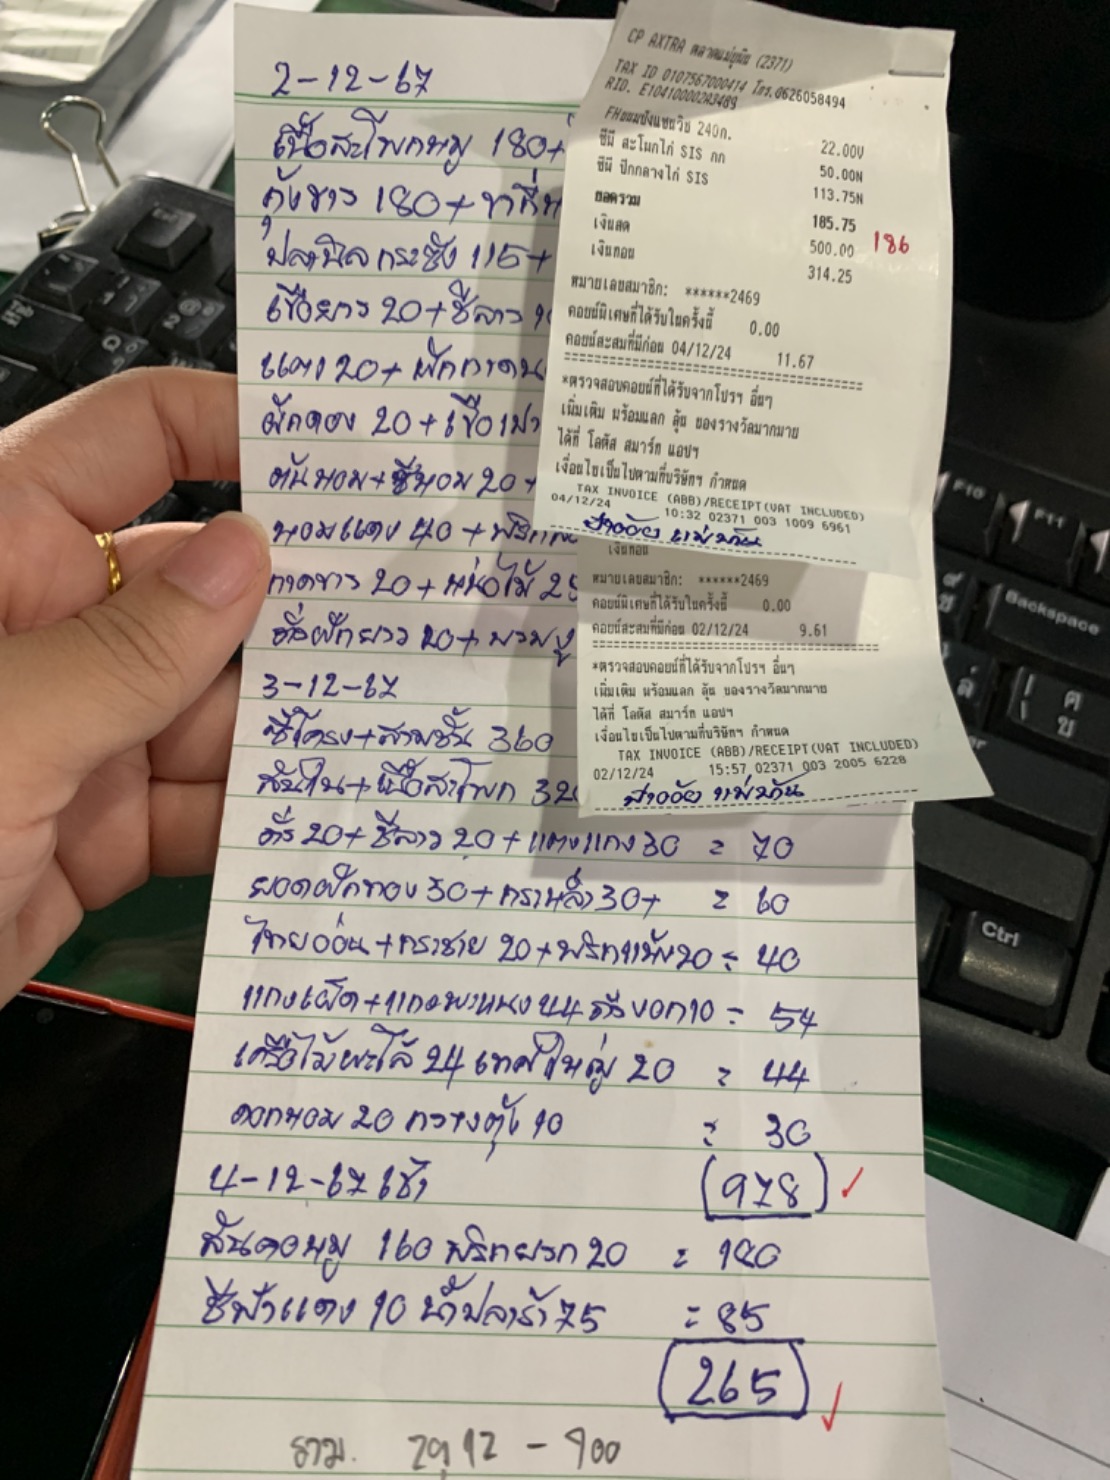 2-12-67
เนื้อสะโพกหมู 180+
กุ้งขาว 180+ขาคี่
ปลานิลกระชัง 115+
เขือยาว 20+ชีลาว 10
แตง 20+ผักกาด
ผักดอง 20+เขือเปา
ต้นหอม+ชีหอม 20+
หอมแดง 40+พริก
กาดขาว 20+หน่อไม้ 25
ถั่วฝักยาว 20+บวบงู
3-12-67
ซี่โครง+สามชั้น 360
สันใน+เนื้อสะโพก 320
ถั่ว 20+ชีลาว 20+แตงแกง 30 = 70
ยอดฟักทอง 30+กะหล่ำ 30+ = 60
ไทยอ่อน+กระชาย 20+พริกแห้ง 20 = 40
แกงเผ็ด+แกงพะแนง 44 ถั่วงอก 10 = 54
เครื่องพะโล้ 24 เทศใหญ่ 20 = 44
ดอกหอม 20 กวางตุ้ง 10 = 30
(978)
4-12-67 เช้า
สันคอหมู 160 พริกหยวก 20 = 180
ชีฟ้าแดง 10 น้ำปลาร้า 75 = 85
(265)
รวม. 2912 - 900
CP AXTRA ตลาดแม่ (2371)
TAX ID 0107567000414 โทร.0626058494
RID. E104100002A3489
FHขนมปังแซนวิช 240ก. 22.00V
ซีพี สะโพกไก่ SIS กก 50.00N
ซีพี ปีกกลางไก่ SIS 113.75N
ยอดรวม 185.75
186
เงินสด 500.00
เงินทอน 314.25
หมายเลขสมาชิก: ******2469
คอยน์พิเศษที่ได้รับในครั้งนี้ 0.00
คอยน์สะสมที่มีก่อน 04/12/24 11.67
*ตรวจสอบคอยน์ที่ได้รับจากโปรฯ อื่นๆ
เพิ่มเติม พร้อมแลก ลุ้น ของรางวัลมากมาย
ได้ที่ โลตัส สมาร์ท แอปฯ
เงื่อนไขเป็นไปตามที่บริษัทฯ กำหนด
TAX INVOICE (ABB)/RECEIPT(VAT INCLUDED)
04/12/24 10:32 02371 003 1009 6961
เงินทอน
หมายเลขสมาชิก: ******2469
คอยน์พิเศษที่ได้รับในครั้งนี้ 0.00
คอยน์สะสมที่มีก่อน 02/12/24 9.61
*ตรวจสอบคอยน์ที่ได้รับจากโปรฯ อื่นๆ
เพิ่มเติม พร้อมแลก ลุ้น ของรางวัลมากมาย
ได้ที่ โลตัส สมาร์ท แอปฯ
เงื่อนไขเป็นไปตามที่บริษัทฯ กำหนด
TAX INVOICE (ABB)/RECEIPT(VAT INCLUDED)
02/12/24 15:57 02371 003 2005 6228
F10
F11
Backspace
Ctrl